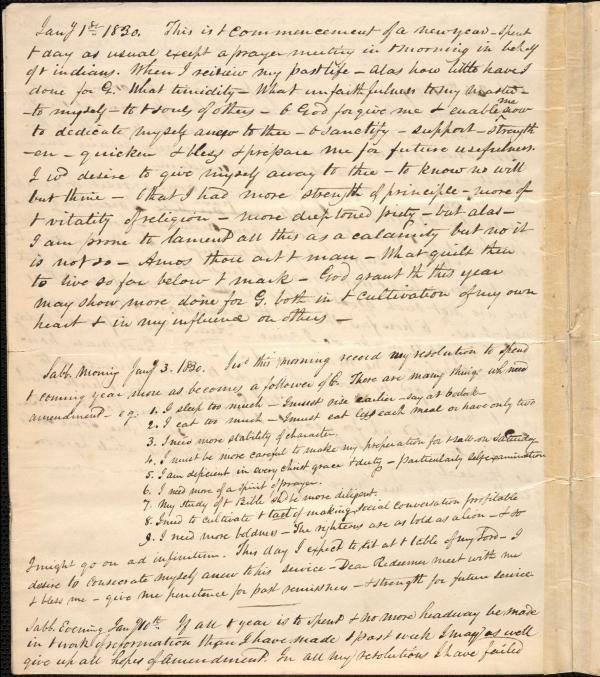 Jany 1st 1830. This is t commencement of a new year - spent
t day as usual except a prayer meeting in t morning in behalf
of t indians. When I review my past life - alas how little have I
done for G. What timidity - What unfaithfulness to my master -
- to myself - to t souls of others - O God forgive me & enable me now
to dedicate myself anew to thee - O sanctify - support - strength
-en - quicken & bless & prepare me for future usefulness.
I wd desire to give myself away to thee - to know no will
but thine - O that I had more strength of principle - more of
t vitality of religion - more deep toned piety - but alas -
I am prone to lament all this as a calamity but no it
is not so - Amos thou art t man - What guilt then
to live so far below t mark - God grant th this year
may show more done for G. both in t cultivation of my own
heart & in my influence on others -
Sabb. Morning Jany 3. 1830. I wd this morning record my resolution to spend
t coming year more as becomes a follower of C. There are many things wh need
amendment - e g: 1. I sleep too much - I must rise earlier - say at 6 oclock -
2. I eat too much - I must eat less each meal or have only two
3. I need more stability of character.
4. I must be more careful to make my preparation for t Sabb. on Saturday
5. I am deficient in every christn grace & duty - particularly self examination
6. I need more of a spirit of prayer.
7. My study of t Bible shd be more diligent.
8. I need to cultivate t tact of making social conversation profitable
9. I need more boldness - The righteous are as bold as a lion - & so
I might go on ad infinitum. This day I expect to sit at t table of my Lord - I
desire to consecrate myself anew to his service - Dear Redeemer meet with me
& bless me - give me penitence for past remissness - & strength for future service
Sabb. Evening Jany 10th. If all t year is to spent & no more headway be made
in t work of reformation than I have made t past week I may as well
give up all hopes of amendment. In all my resolutions I have failed